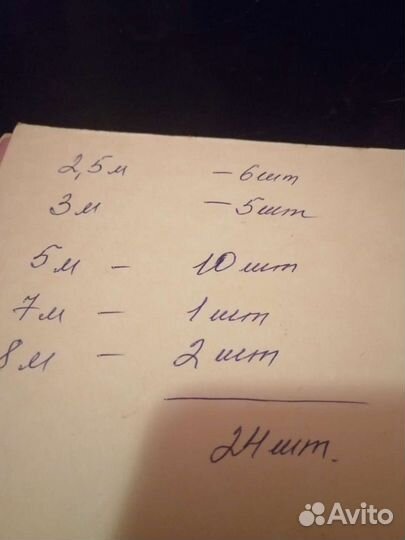 2,5м - 6шт
3м - 5шт
5м - 10 шт
7м - 1 шт
8м - 2 шт
24 шт.
Avito